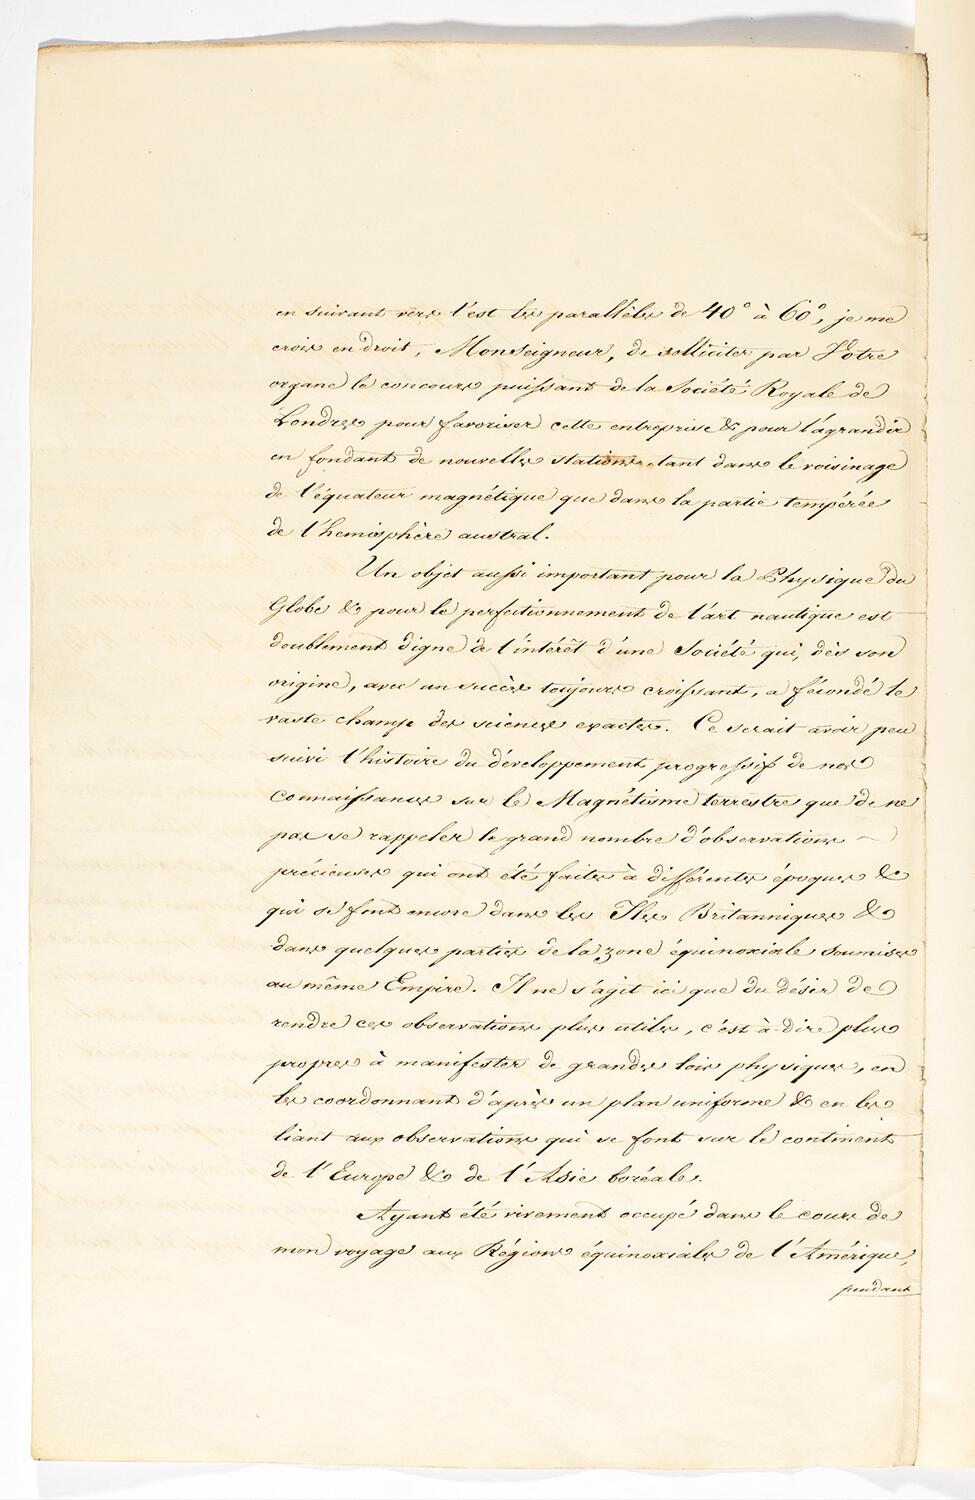 en suivant vers l'est les parallèles de 40° à 60°, je me
crois en droit, Monseigneur, de solliciter par Votre
organe le concours puissant de la Société Royale de
Londres pour favoriser cette entreprise & pour l'agrandir
en fondant de nouvelles stations, tant dans le voisinage
de l'équateur magnétique que dans la partie tempérée
de l'hemisphère austral.
Un objet aussi important pour la Physique du
Globe & pour le perfectionnement de l'art nautique est
doublement digne de l'intérêt d'une Société qui, dès son
origine, avec un succès toujours croissant, a fécondé le
vaste champ des sciences exactes. Ce serait avoir peu
suivi l'histoire du développement progressif de nos
connaissances sur le Magnétisme terrestre que de ne
pas se rappeler le grand nombre d'observations
précieuses qui ont été faites à différentes époques &
qui se font encore dans les Iles Britanniques &
dans quelques parties de la zone équinoxiale soumises
au même Empire. Il ne s'agit ici que du désir de
rendre ces observations plus utiles, c'est à-dire plus
propres à manifester de grandes lois physiques, en
les coordonnant d'après un plan uniforme & en les
liant aux observations qui se font sur le continent
de l'Europe & de l'Asie boréale.
Ayant été vivement occupé dans le cours de
mon voyage aux Régions équinoxiales de l'Amérique,
pendant